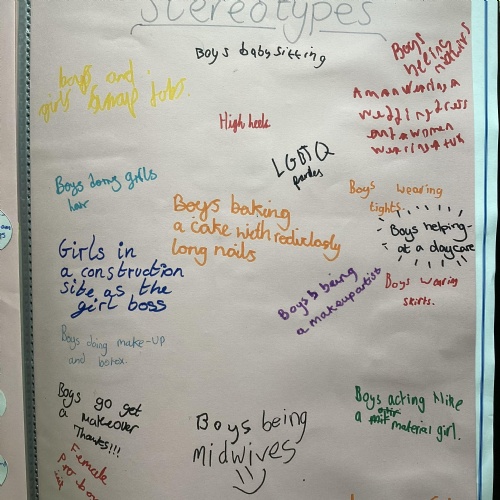 Stereotypes
Boys babysitting
Boys
being
boys and
girls swap jobs.
A man wearing a
wedding dress
and a women
wearing a tux
High heels
LGBTQ
Boys doing girls
hair
Boys baking
a cake with rediculosly
long nails
Boys wearing
tights.
Boys helping
at a daycare
Girls in
a construction
site as the
girl boss
Boys being
a makeup artist
Boys wearing
skirts.
Boys doing make-up
and botox.
Boys go get
a makeover
Thanks!!!
Boys being
midwives
Boys acting like
a material girl.
Female
pro